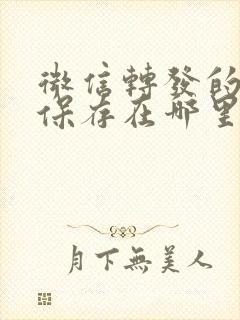 微信轉發的
保存在哪里
月下無美人